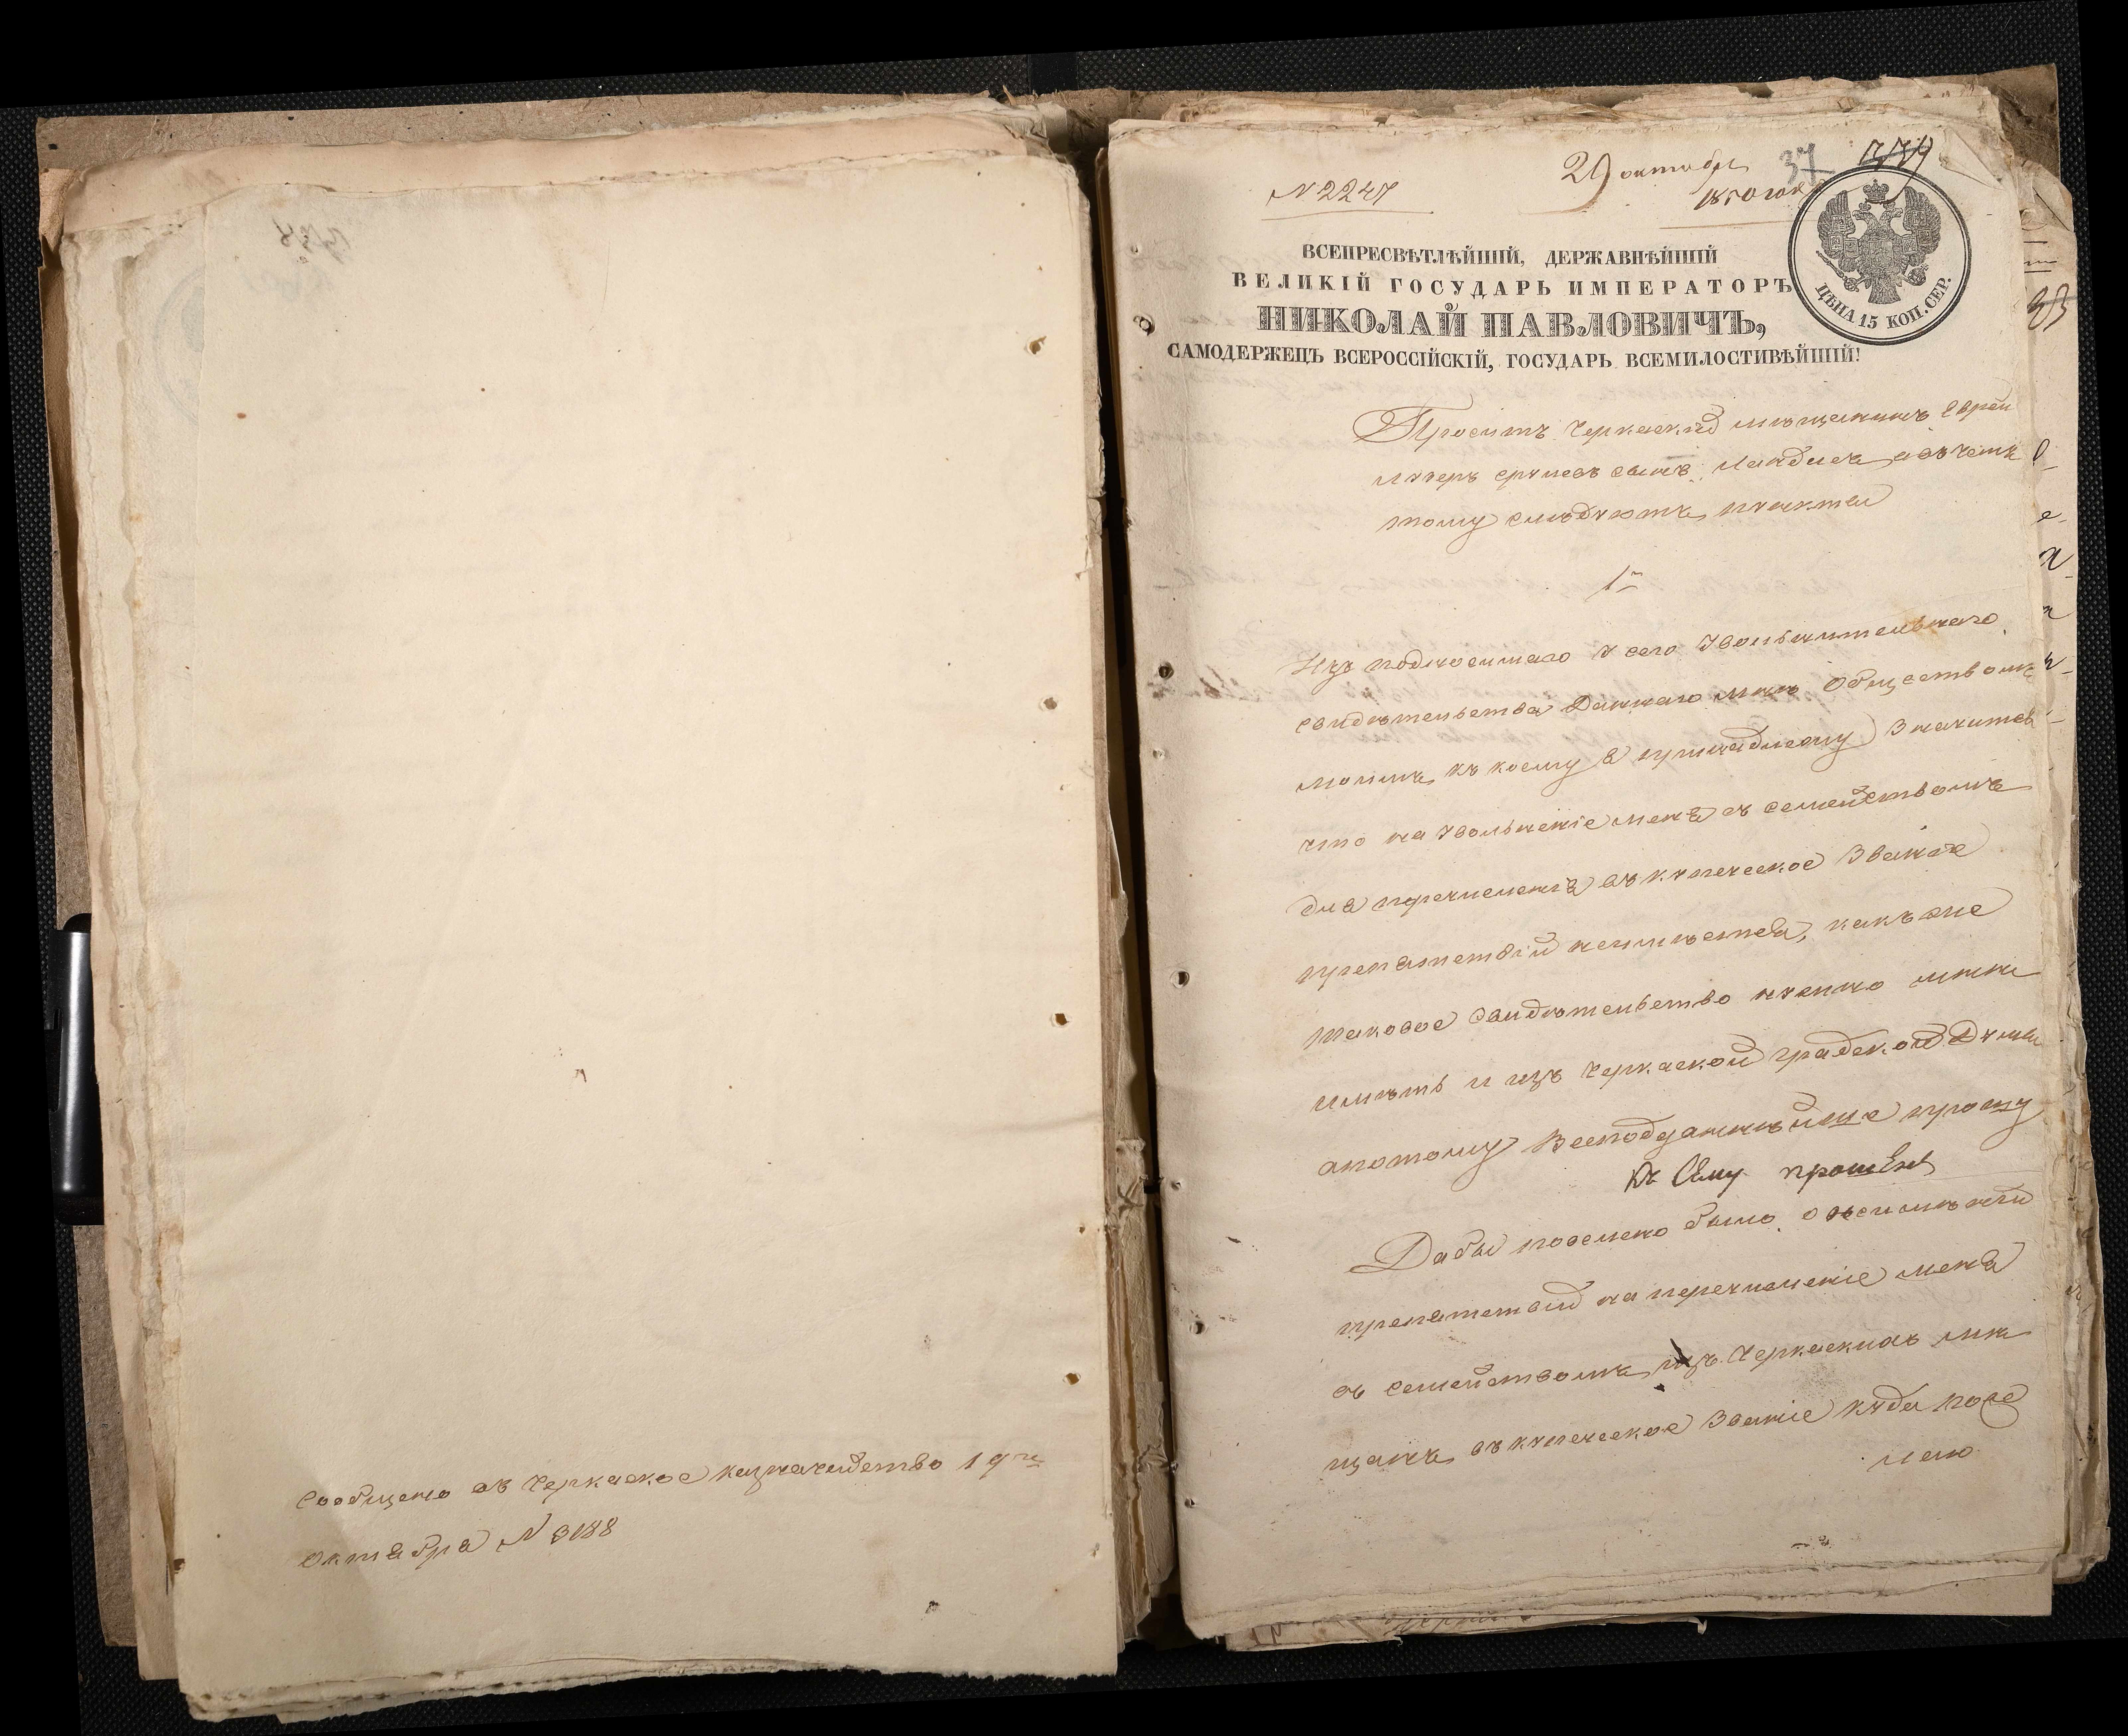 Сообщено въ Черкаское казначейство 19го
октября N 3188
N 2247
29 октября
1850 года
37
ВСЕПРЕСВѢТЛѢЙШІЙ, ДЕРЖАВНѢЙШІЙ
ВЕЛИКІЙ ГОСУДАРЬ ИМПЕРАТОРЪ
НИКОЛАЙ ПАВЛОВИЧЪ,
САМОДЕРЖЕЦЪ ВСЕРОССІЙСКІЙ, ГОСУДАРЬ ВСЕМИЛОСТИВѢЙШІЙ!
ЦѢНА 15 КОП. СЕР.
Проситъ Черкаскій мѣщанинъ Еврей
сынъ
тому слѣдуютъ пункты
1е
Изъ подносимаго у сего Увольнительнаго
свидѣтельства Даннаго мнѣ Обществомъ
моимъ къ коему я принадлежу Значится
что на Увольненіе меня съ семействомъ
для перечисленія въ купеческое Званіе
препятствій неимѣется, какъ же
таковое Свидѣтельство нужно мнѣ
имѣть и изъ Черкаской градской Думы
апотому Всеподданнѣйше прошу
Къ Сему прошенію
Дабы повелено было о неимѣніи
препятствій на перечисленіе меня
съ семействомъ изъ Черкаскихъ мѣ
щанъ въ купеческое Званіе куда пове
лено